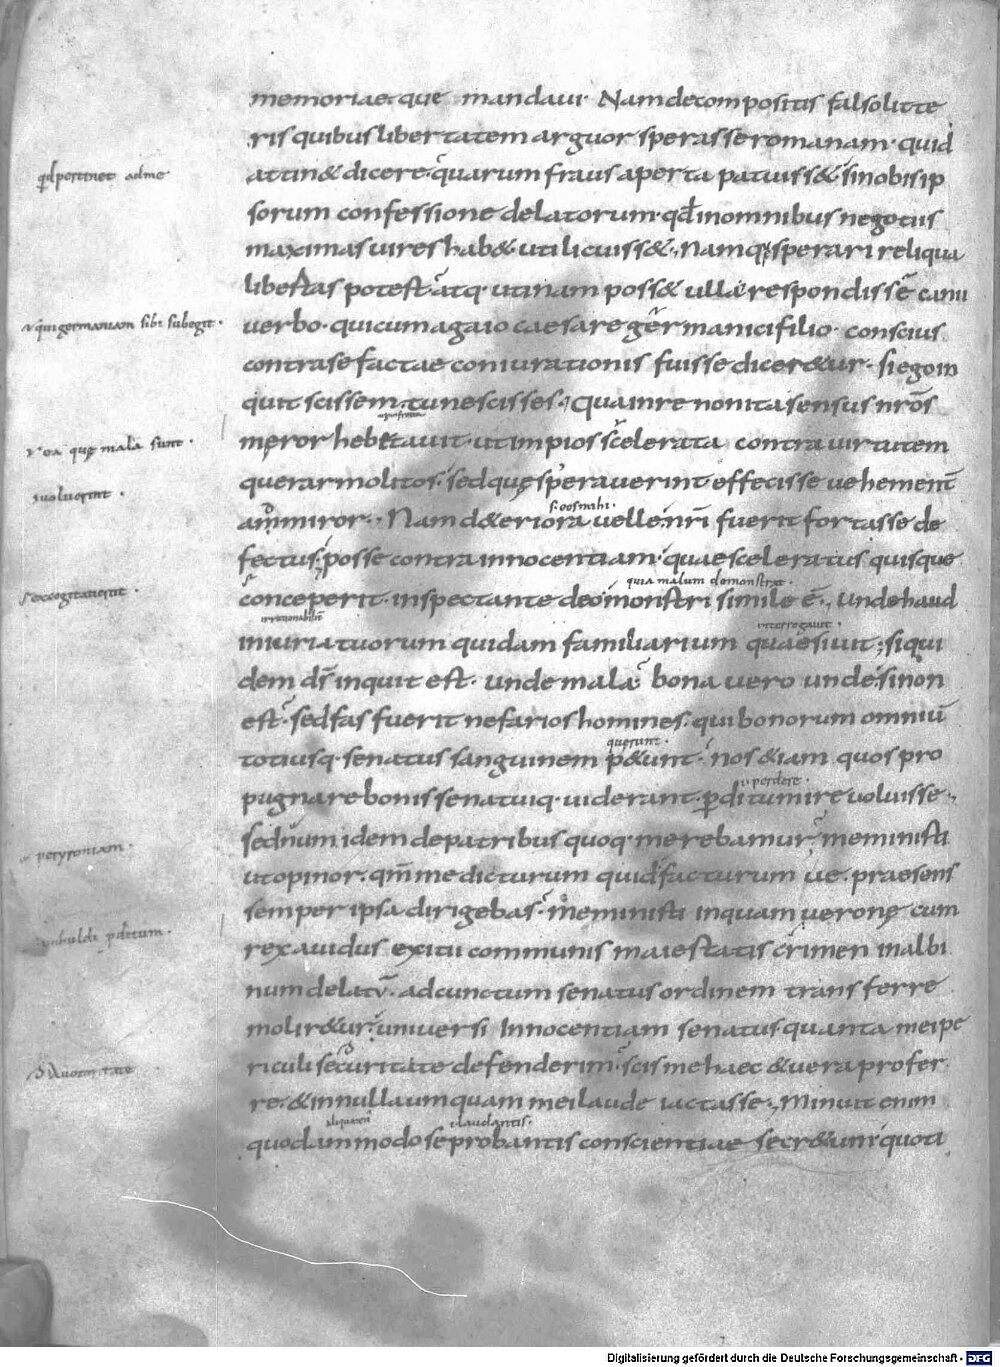 memoriae que mandavi. Nam decompositis falso litte
ris quibus libertatem arguor sperasse romanam. quid
qd pertinet ad me
attin& dicere quarum fraus aperta patuiss& si nobis ip
sorum confessione delatorum. qđ in omnibus negotiis
maximas vires hab& uti licuiss&. Nam q sperari reliqua
libertas potest. atq. utinam poss& ulla respondissē canii
qui germaniam sibi subegit.
verbo. qui cum a gaio caesare germanici filio. conscius
contra se factae coniurationis fuisse dicer&ur. si ego in
quit scissem. tu nescisses. Qua in re non ita sensus nr̄os
ea que mala sunt.
meror hebetavit. ut impios scelerata contra virtutem
voluerint.
querar molitos. sed que speraverint effecisse vehement̄
s. eos mali.
ammiror. Nam d&eriora velle nr̄i fuerit fortasse de
fectus. posse contra innocentiam. quae sceleratus quisque
quia malum demonstrat.
excogitaverit.
conceperit. inspectante deo monstri simile ē. Unde haud
interrogavit.
iniuria tuorum quidam familiarium quaesivit; si qui
dem dr̄ inquit est. unde mala. bona vero unde si non
est. sed fas fuerit nefarios homines. qui bonorum omniū
querunt.
totiusq. senatus sanguinem p&unt. nos &iam quos pro
perdere.
pugnare bonis senatuiq. viderant. pditum ire voluisse.
sed num idem de patribus quoq. merebamur. meministi
ut opinor. qm̄ me dicturum quid facturum ve. praesens
semper ipsa dirigebas. meministi inquam verone cum
rex avidus exitii communis maiestatis crimen in albi
num delatū. ad cunctum senatus ordinem transferre
molir&ur. universi Innocentiam senatus. quanta mei pe
riculi securitate defenderim. scis me haec & vera profer
re. & in nulla umquam mei laude iactasse. Minuit enim
laudantis.
quodam modo se probantis conscientiae secr&um. quoti
Digitalisierung gefördert durch die Deutsche Forschungsgemeinschaft - DFG